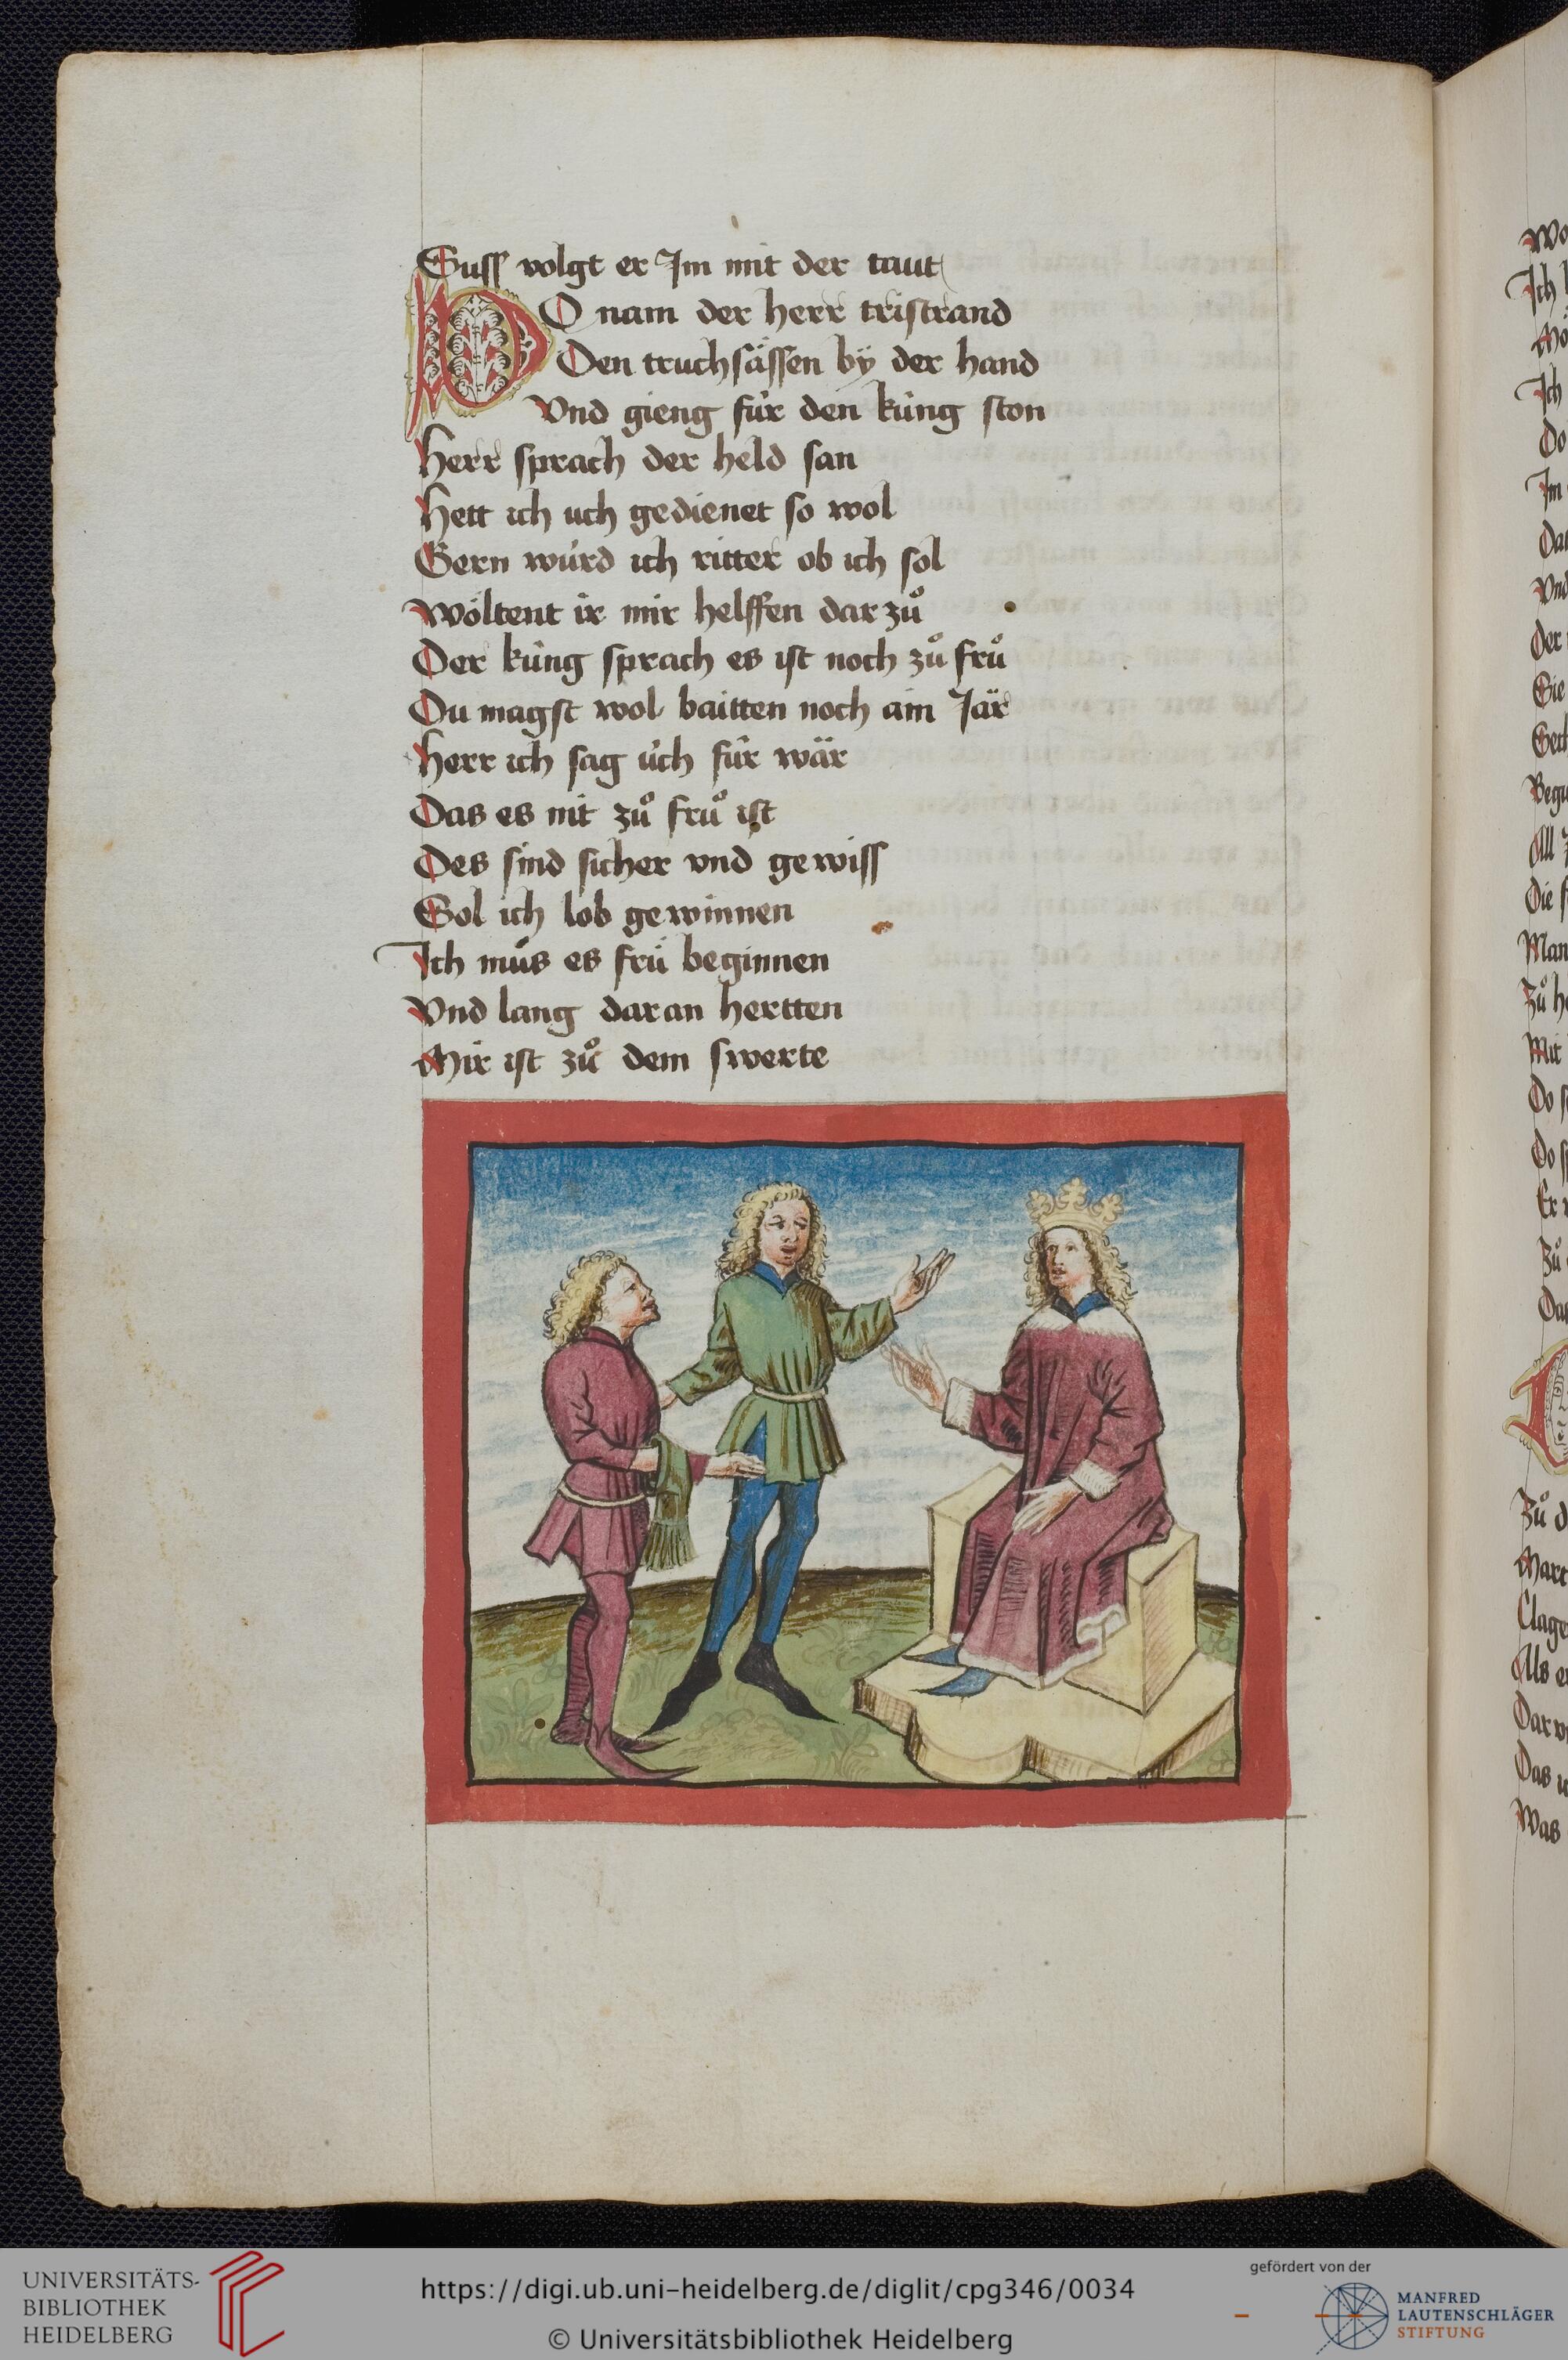 Suss volgt er Jm mit der taut
DO nam der herr tristrand
Den truchsässen bÿ der hand
Vnd gieng fúr den kúng ston
Herr sprach der held san
Hett ich uch gedienet so wol
Gern wúrd ich ritter ob ich sol
Wöltent ir mir helffen dar zuͦ
Der kúng sprach es ist noch zuͦ fruͦ
Du magst wol baitten noch ain Jär
Herr ich sag úch fúr wär
Das es nit zuͦ fruͦ ist
Des sind sicher vnd gewiss
Sol ich lob gewinnen
Ich mús es frü beginnen
Vnd lang daran hertten
Mir ist zuͦ dem swerte
Ich
Do
Jm
Vnd
Der
Sie
All
Die
Man
Zuͦ
Mit
Do
Do
Er
Zuͦ
Das
Zuͦ
Clage
Als
Das
Was
UNIVERSITÄTS-
BIBLIOTHEK
HEIDELBERG
https://digi.ub.uni-heidelberg.de/diglit/cpg346/0034
© Universitätsbibliothek Heidelberg
gefördert von der
MANFRED
LAUTENSCHLÄGER
STIFTUNG